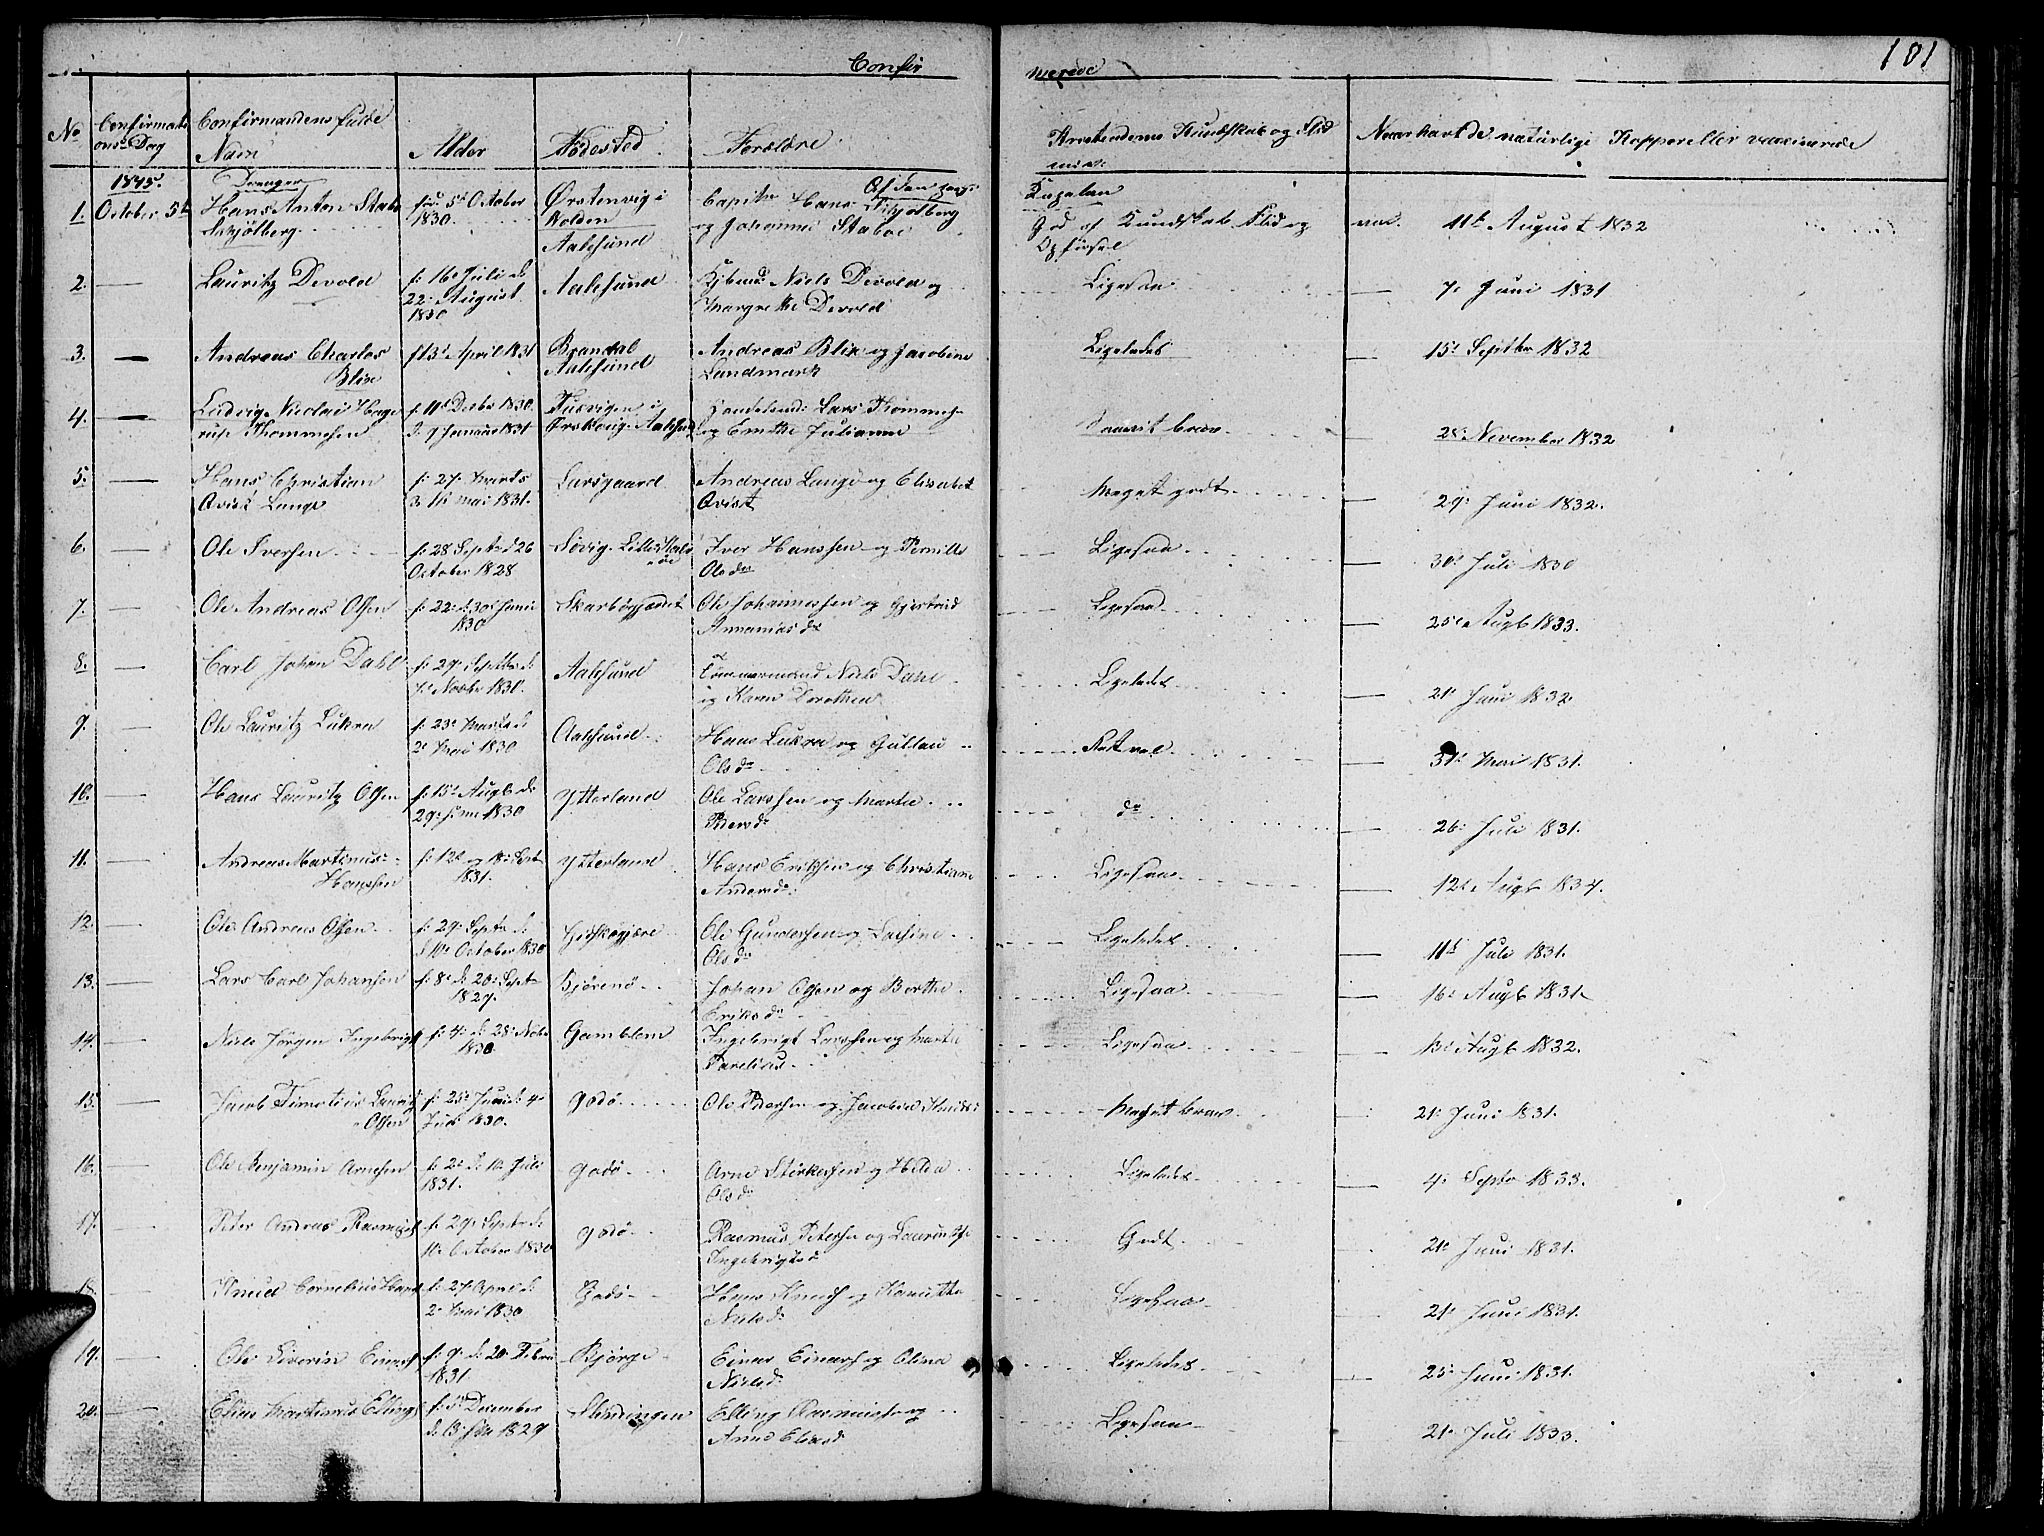 Confir merede 101
No Confirmati ons Dag Confirmandens fulde Navn Alder Fødested Forældre Kristendoms Kundskab og Flid Naar havt de naturlige Kopper eller vaccinerede
1845. Drenger
1. October 5te Hans Anton Stabo Schjølberg født 5te October 1830. Ørstenvig i Volden Aalesund Capitn Hans Schjølberg og Johanne Staboe God af Kundskab Flid og Opførsel vac. 11te August 1832
2. — Lauritz Devold f: 16 Juli d: 22: August 1830 Aalesund Kjbmd Niels Devold og Margrethe Devold Ligesaa — 7: Juni 1831
3. — Andreas Charles Blix f 13: April 1831 Brandal Aalesund Andreas Blix og Jacobine Landmark Ligeledes — 15: Septbr 1832
4. — Ludvig Nicolai Hagerup Thommesen f: 11te Decbr 1830. d: 9 Januar 1831 i Ørskoug. Aalesund Handelsmd: Lars Thommes: og Emthe Julianne brav. — 28: November 1832
5. — Hans Christian Qvist Lange f: 27: Marts 1831. Larsgaard Andreas Lange og Elisabet Qvist Meget godt — 29: Juni 1832.
6. — Ole Iversen f: 28 Septr d 26 October 1828 Søvig. Iver Hanssen og Pernille Olsdr Ligesaa. — 30: Juli 1830
7. — Ole Andreas Olsen f: 22: d: 30: Juni 1830 Skarbøgjædet Ole Johannessen og Gjertrud Annaniasdr Ligesaa — 25: Augb 1833.
8. — Carl Johan Dahl f: 29: Septbr d: Novbr 1830. Aalesund Tømmermand Niels Dahl og Karen Dorothea Ligeledes — 21: Juni 1832
9. — Ole Lauritz Lukra f: 23: Marts d: 2: Mai 1830 Aalesund Hans Lukra og Gullau Olsdr Ret vel — 31: Mai 1831.
10. — Hans Lauritz Olsen f: 15: Augb d: 29: 1830 Ytterland Ole Larssen og Marta Pedersdr do — 26: Juli 1831.
11. — Andreas Martinus Hanssen f: 12: og 18: Sept 1831. Ytterland Hans Eriksen og Christiane Andersdr Ligesaa — 12: Augb 1834.
12. — Ole Andreas Olsen f: 29: Septr d: 10: October 1830 Ole Gundersen og Olsdr Ligeledes — 11te Juli 1831.
13. — Lars Carl Johansen f: 8: d: 20: Septr 1829. Bjørenø Johan Olsen og Berthe Eriksdr Ligesaa — 16: Augb 1831
14. — Niels Jørgen Ingebrigts f: 4: d: 28: Novb 1830 Gamblem Ingebrigt Larssen og Marta Ligesaa — Augb 1832.
15. — Jacob Timotius Lauritz Olsen f: 25: Juni d: 4: Juli 1830. Godø Ole Pedersen og Jacobia Meget brav — 21: Juni 1831.
16. — Ole Benjamin Arnesen f: 2: d: 10. Juli 1831. Godø Arne Størkersen og Olsdr Ligeledes — 4: Septbr 1833.
17. — Peter Andreas Rasmuss f: 29: Septr d: 10: October 1830 Godø Rasmus Petersen og Ingebrigtsd Godt 21: Juni 1831.
18. — Knud Cornelius Hans f: 27 April d: 2: Mai 1830 Godø Hans Knuds og Nielsd: Ligesaa — 21: Juni 1831.
19. — Ole Siverin Einars f: 9: d: 20: Febru 1831 Bjørge Einar Einars og Olina Nielsd: Ligeledes — 25: Juni 1831.
20. — Elias Martinus Ellings f: 5: December 1829 Elling Rasmuss og Anne Eliasd Ligesaa 21: Juli 1833.